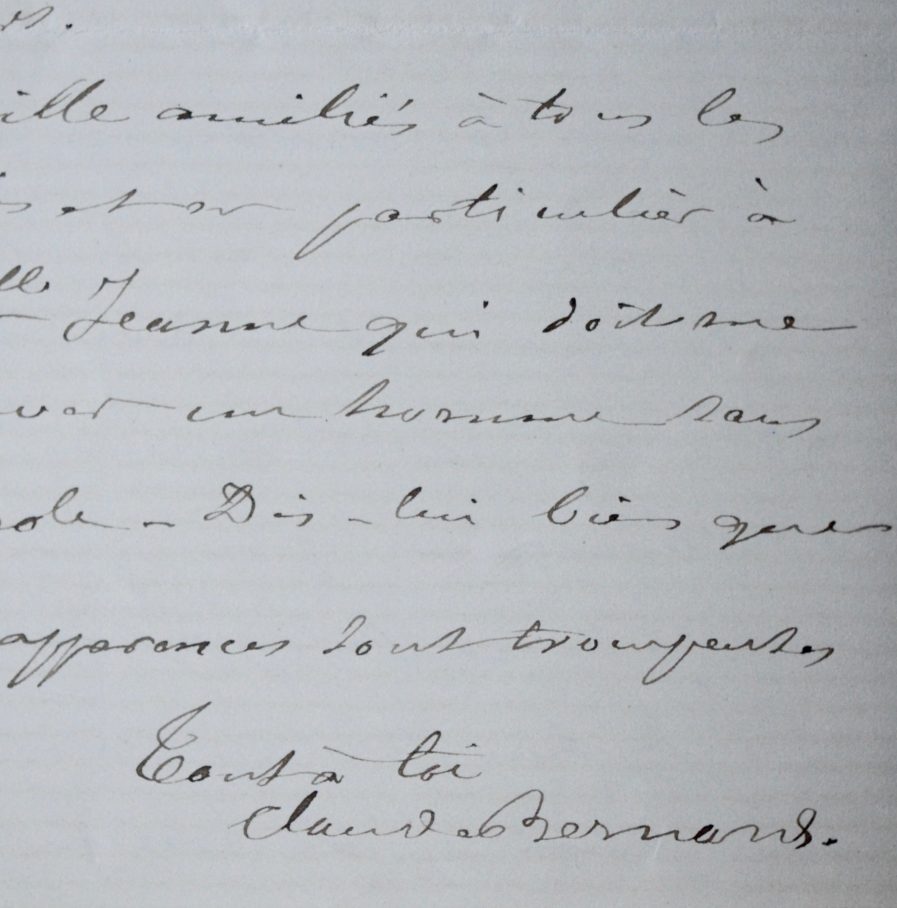 ille amitiés à tous les
et en particulier à
lle Jeanne qui doit me
un homme sans
ole - Dis-lui bien que
apparences sont trompeuses
Tout à toi
Claude Bernard.